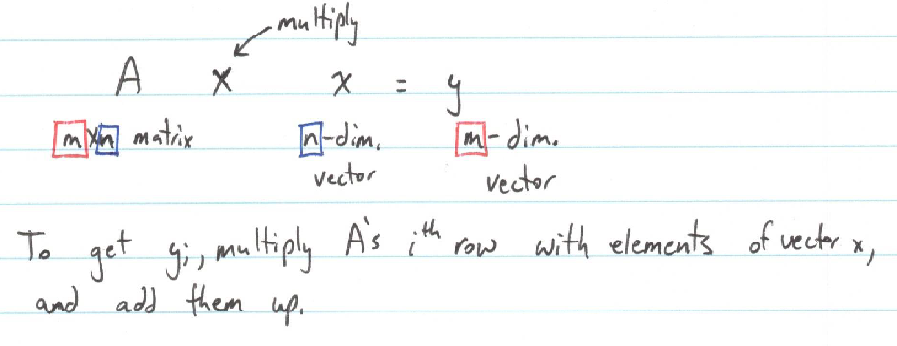 multiply
A × x = y
m×n matrix n-dim. m-dim.
vector vector
To get yi, multiply A's ith row with elements of vector x,
and add them up.